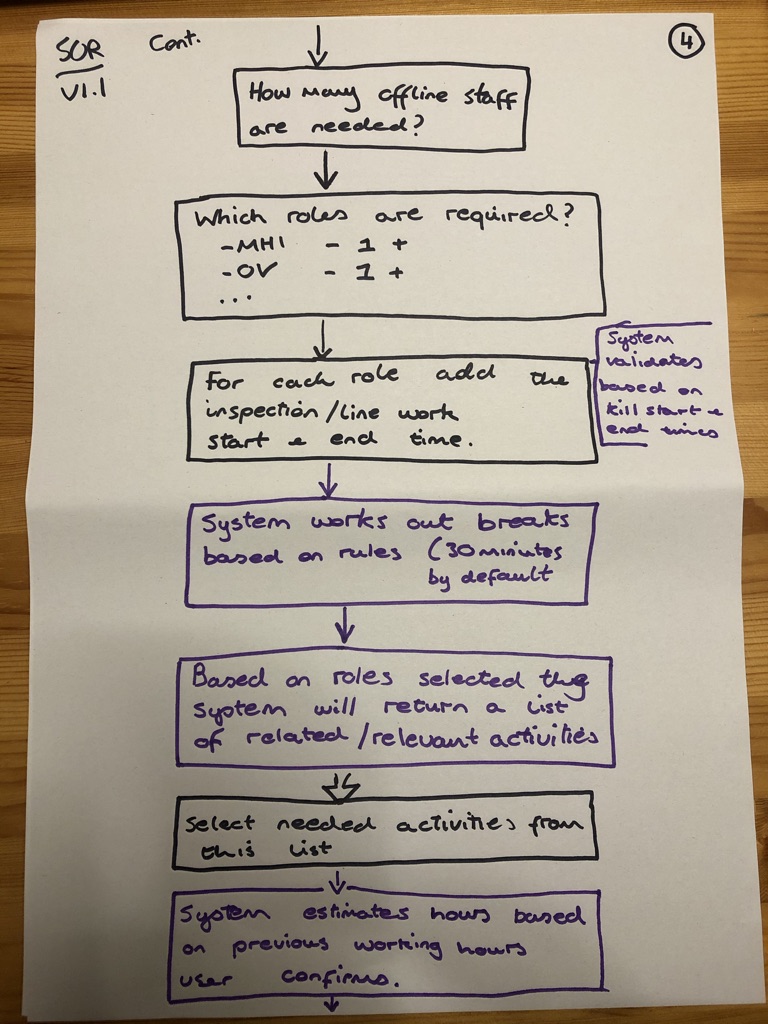 SOR Cont. 4
V1.1
How many offline staff
are needed?
Which roles are required?
-MHI - 1 +
-OV - 1 +
...
For each role add the
inspection/line work
start & end time.
System
validates
based on
kill start &
end times
System works out breaks
based on rules (30 minutes
by default
Based on roles selected the
system will return a list
of related/relevant activities
Select needed activities from
this list
System estimates hours based
on previous working hours
user confirms.